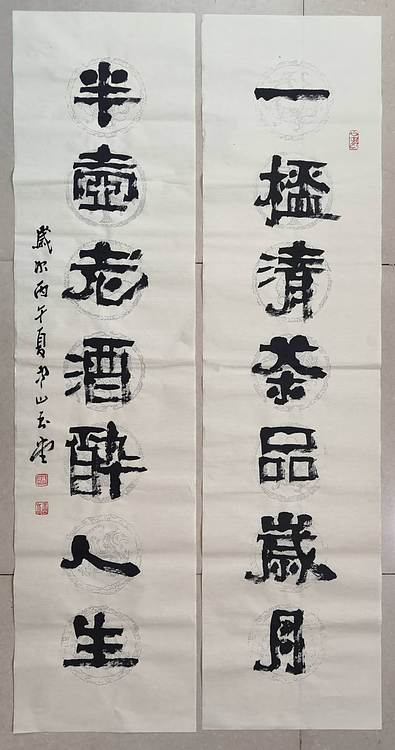 一榲清茶品歲月
半壺老酒醉人生
歲次丙午夏